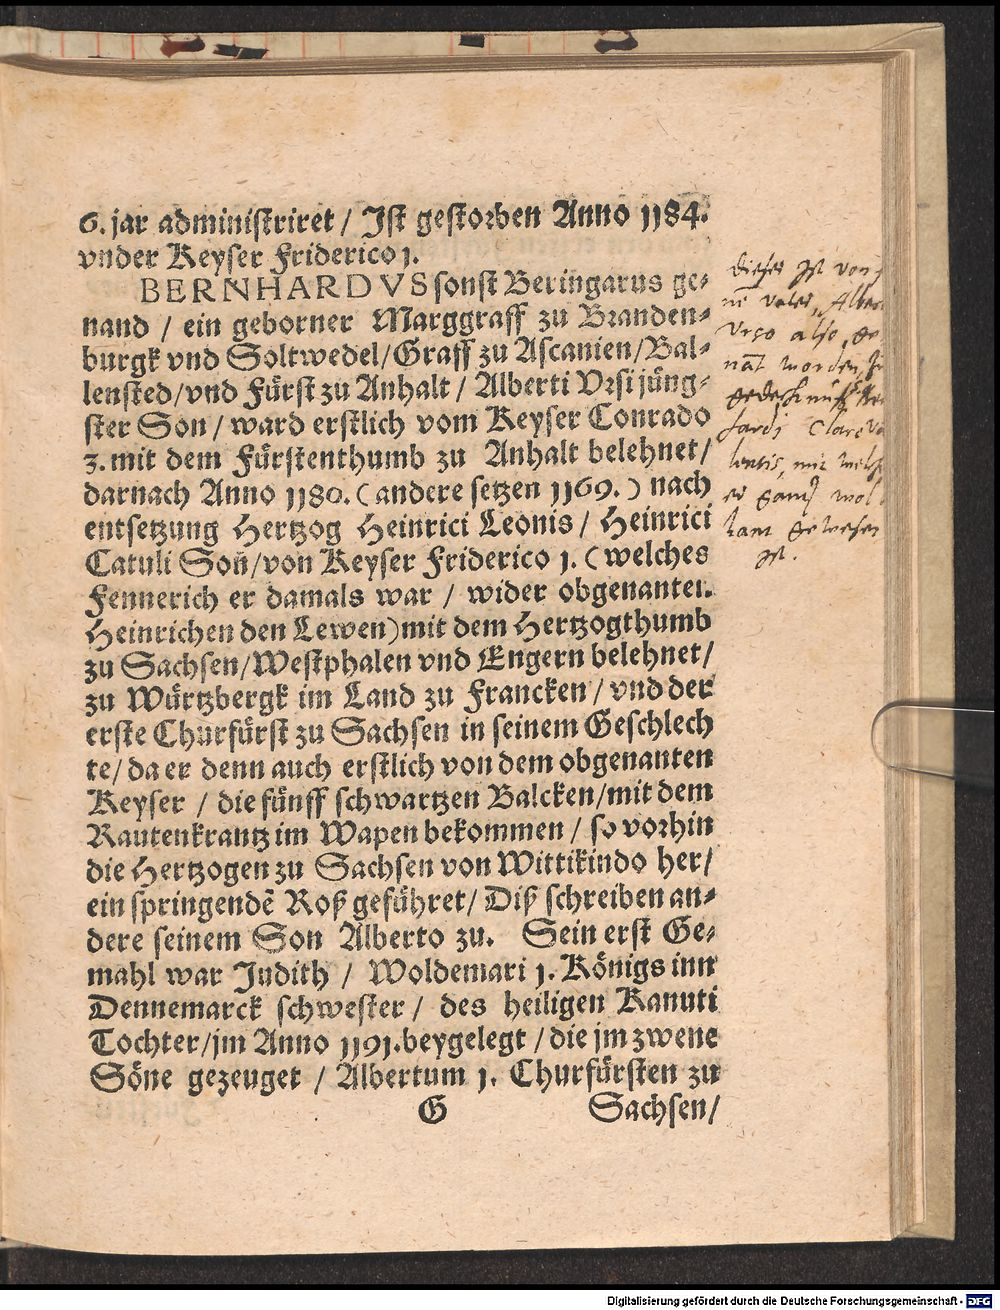 6. jar administriret / Jst gestorben Anno 1184.
vnder Keyser Friderico 1.
BERNHARDVS sonst Beringarus ge⸗
nand / ein geborner Marggraff zu Branden⸗
burgk vnd Soltwedel/Graff zu Ascanien/Bal⸗
lensted/vnd Fürst zu Anhalt / Alberti Vrsi jüng⸗
ster Son / ward erstlich vom Keyser Conrado
3. mit dem Fürstenthumb zu Anhalt belehnet/
darnach Anno 1180. (andere setzen 1169.) nach
entsetzung Hertzog Heinrici Leonis / Heinrici
Catuli Son/von Keyser Friderico 1. (welches
Fennerich er damals war / wider obgenanten
Heinrichen den Lewen) mit dem Hertzogthumb
zu Sachsen/Westphalen vnd Engern belehnet/
zu Würtzbergk im Land zu Francken / vnd der
erste Churfürst zu Sachsen in seinem Geschlech
te/ da er denn auch erstlich von dem obgenanten
Keyser / die fünff schwartzen Balcken/mit dem
Rautenkrantz im Wapen bekommen / so vorhin
die Hertzogen zu Sachsen von Wittikindo her/
ein springendē Roß geführet/ Diß schreiben an⸗
dere seinem Son Alberto zu. Sein erst Ge⸗
mahl war Judith / Woldemari 1. Königs inn
Dennemarck schwester / des heiligen Kanuti
Tochter/jm Anno 1191. beygelegt / die jm zwene
Söne gezeuget / Albertum 1. Churfürsten zu
G Sachsen/
dieses ist von
vater, Alber
Vrso also ge
nāt worden,
gedechnüß
hardi Clarev
lensis, mit welch
er gantz wol
kant gewesen
ist.
Digitalisierung gefördert durch die Deutsche Forschungsgemeinschaft - DFG